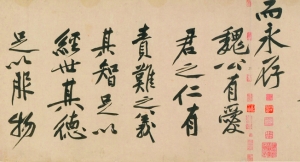 而永存
魏公有愛
君之仁有
責難之義
其智足以
經世其德
足以服物